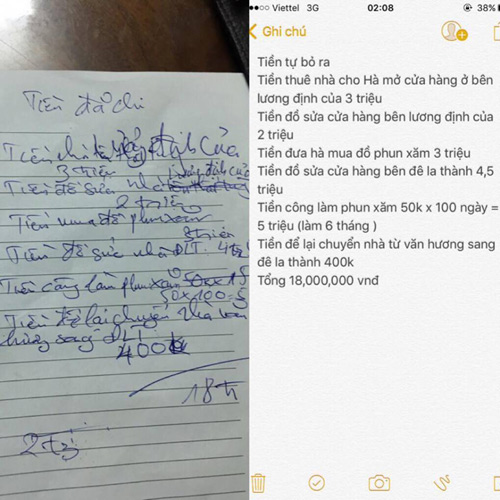 Tiền đã chi
3 triệu
2 triệu
Tiền mua đồ phun xăm
3 triệu
Tiền đồ sửa nhà ĐLT. 4tr
Tiền công làm phun xăm
50x100=5
Tiền để lại chuyển nhà văn
hương sang ĐLT
400k
18 tr
Viettel 3G 02:08 38%
Ghi chú
Tiền tự bỏ ra
Tiền thuê nhà cho Hà mở cửa hàng ở bên
lương định của 3 triệu
Tiền đồ sửa cửa hàng bên lương định của
2 triệu
Tiền đưa hà mua đồ phun xăm 3 triệu
Tiền đồ sửa cửa hàng bên đê la thành 4,5
triệu
Tiền công làm phun xăm 50k x 100 ngày =
5 triệu (làm 6 tháng )
Tiền để lại chuyển nhà từ văn hương sang
đê la thành 400k
Tổng 18,000,000 vnđ